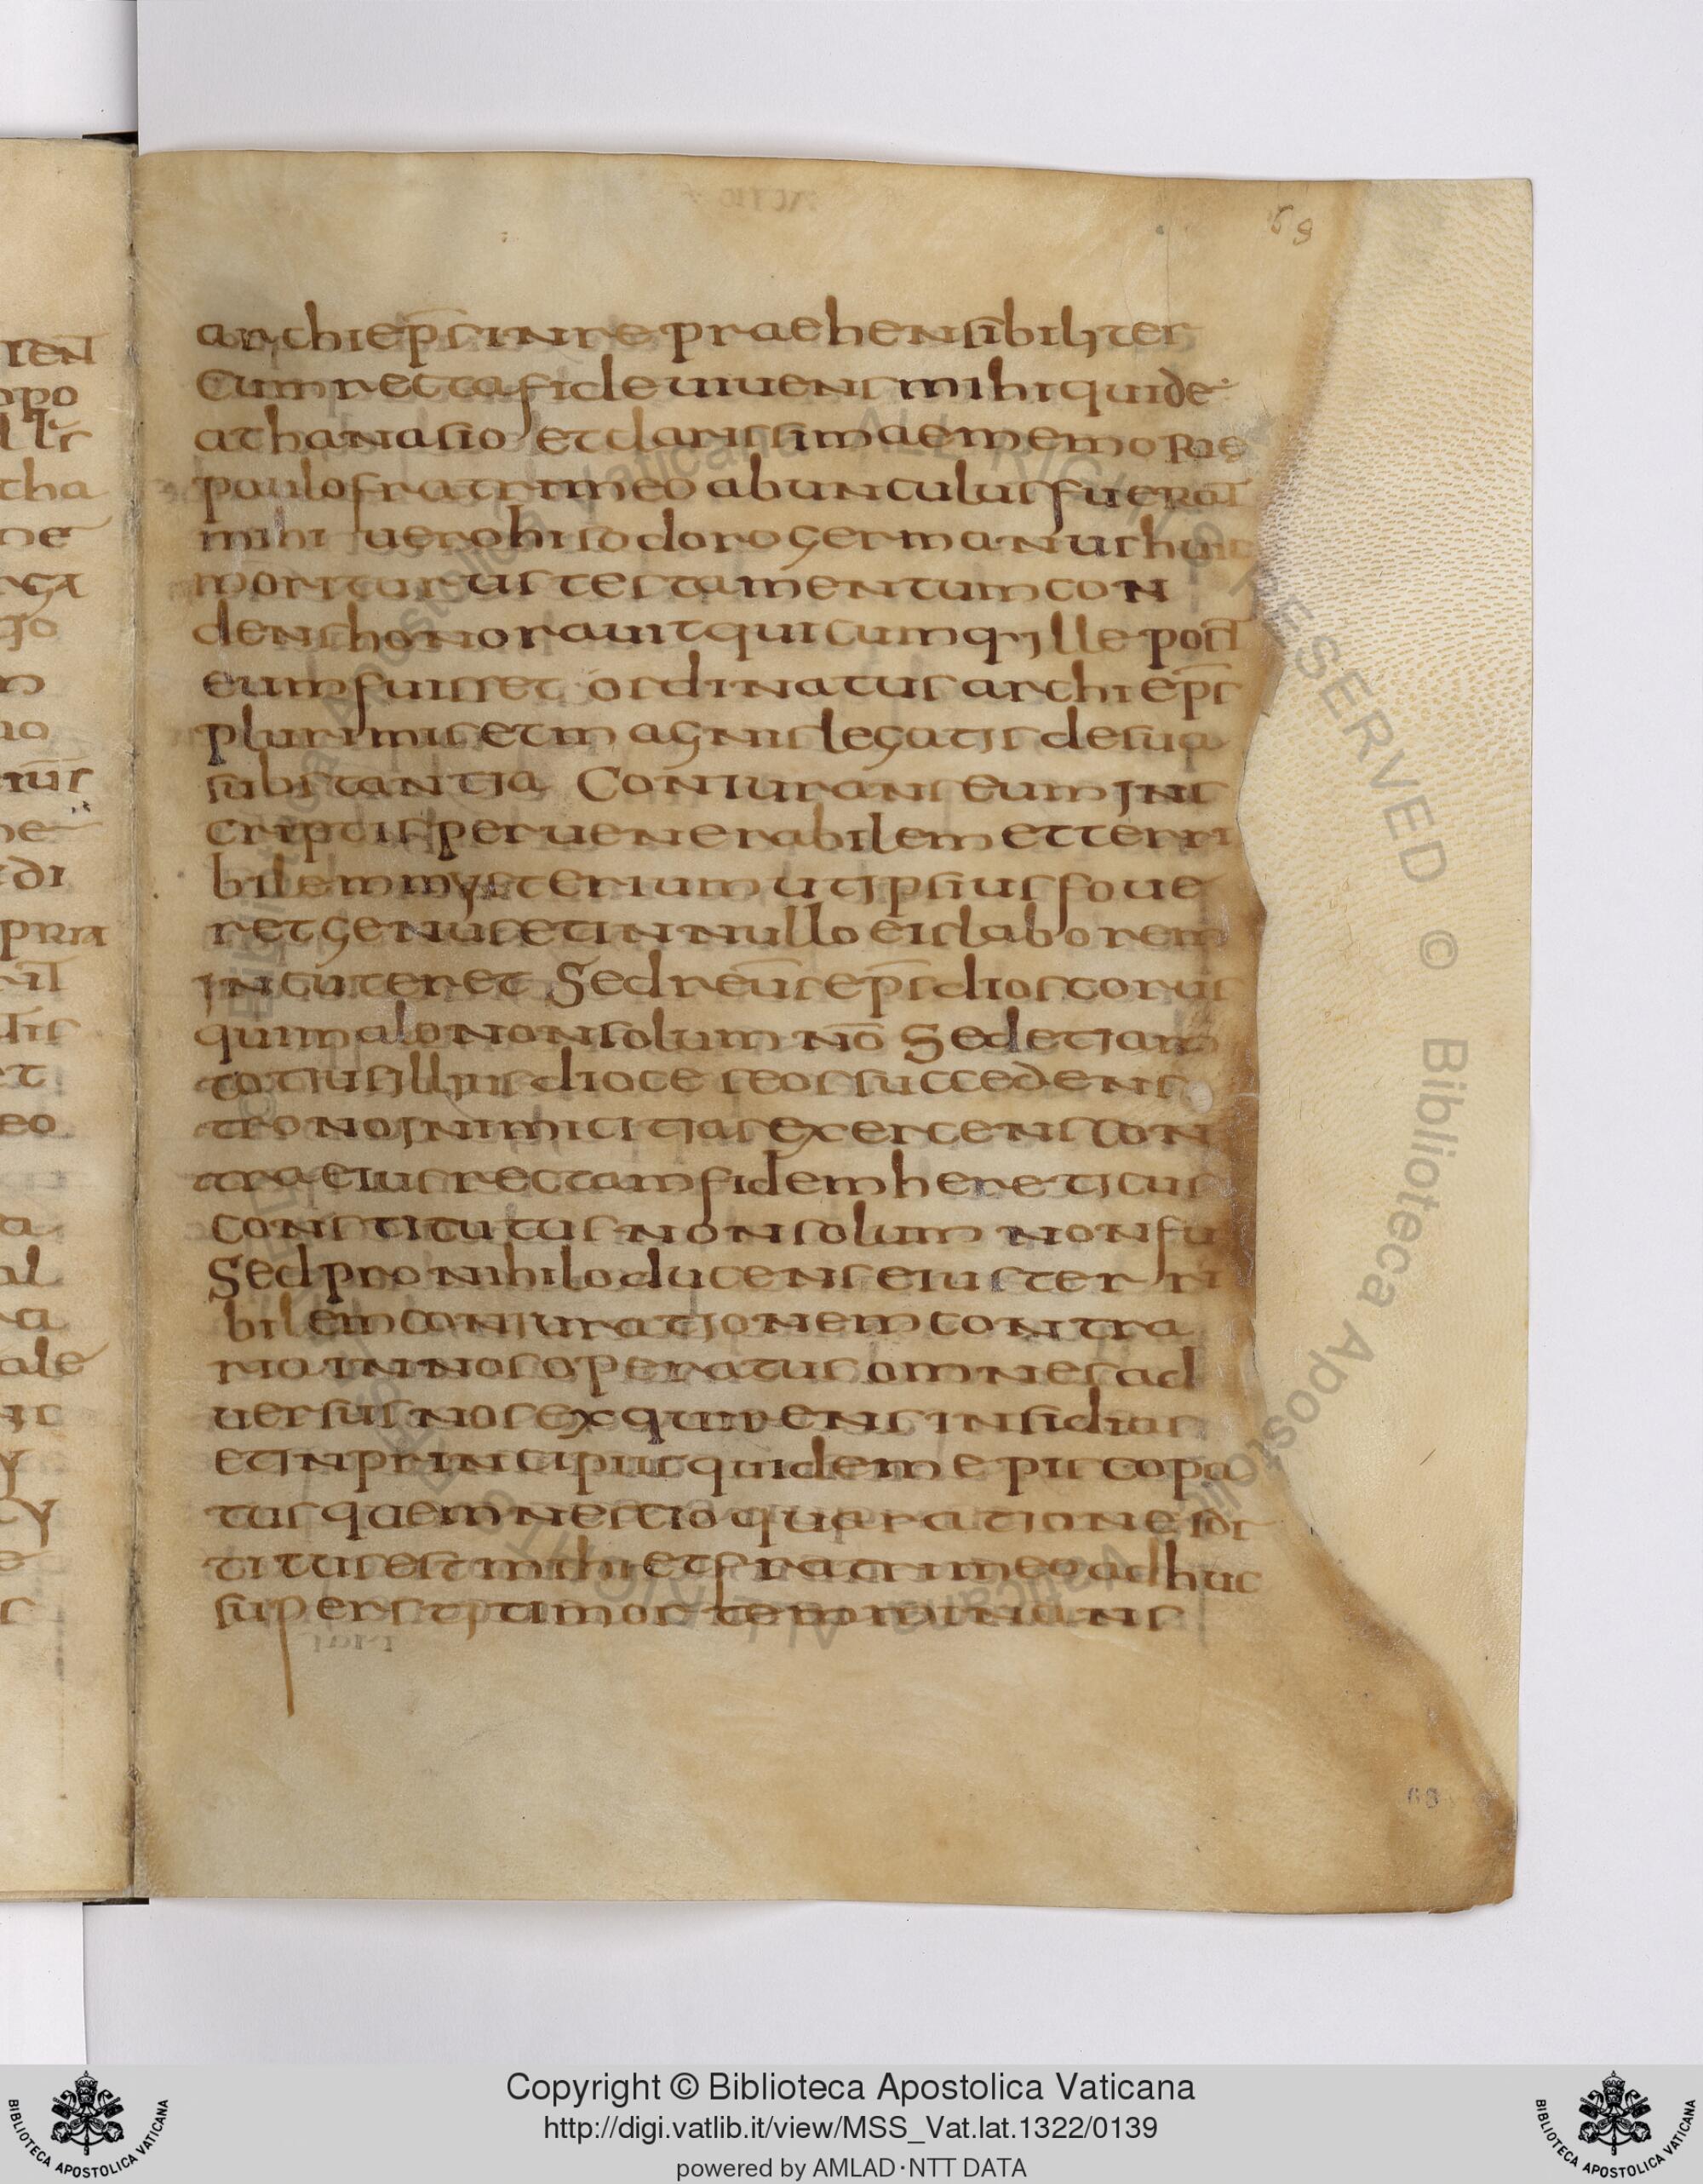 69
archiep̄s inrepraehensibiliter
Cum recta fide uiuens mihi quide·
athanasio et clarissimae memoRie
paulo fratri meo abunculus fueraT
mihi uero hisodoro germanus huic
moriturus testamentum con
dens honorauit quicumq; ille post
eum fuisset ordinatus archiep̄s
plurimis et magnis legatis de sua
substantia Coniurans eum ins
criptis per uenerabilem et terri
bilem mysterium ut ipsius foue
ret genus et in nullo eis laborem
incuteret Sed reūs ep̄s dioscorus
qui malo non solum nō Sed etiam
totius illius dioceseos succedens
trono inimicitias exercens con
tra eius rectam fidem hereticus
constitutus non solum non fu
Sed pro nihilo ducens eius terri
bilem coniurationem contra
rio in nos operatus omnes ad
uersus nos exquirens insidias
et in principiis quidem episcopa
tus quem nescio qua ratione sor
titus est mihi et fratri meo adhuc
superstiti mortem minans
68
Copyright © Biblioteca Apostolica Vaticana
http://digi.vatlib.it/view/MSS_Vat.lat.1322/0139
powered by AMLAD·NTT DATA
BIBLIOTECA APOSTOLICA VATICANA
BIBLIOTECA APOSTOLICA VATICANA